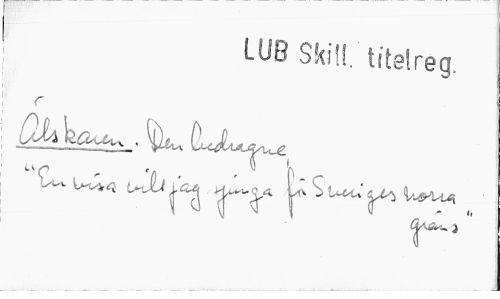 LUB Skill. titelreg.
Älskaren. Den bedragne
"En visa vill jag sjunga för Sveriges norra
gräns"